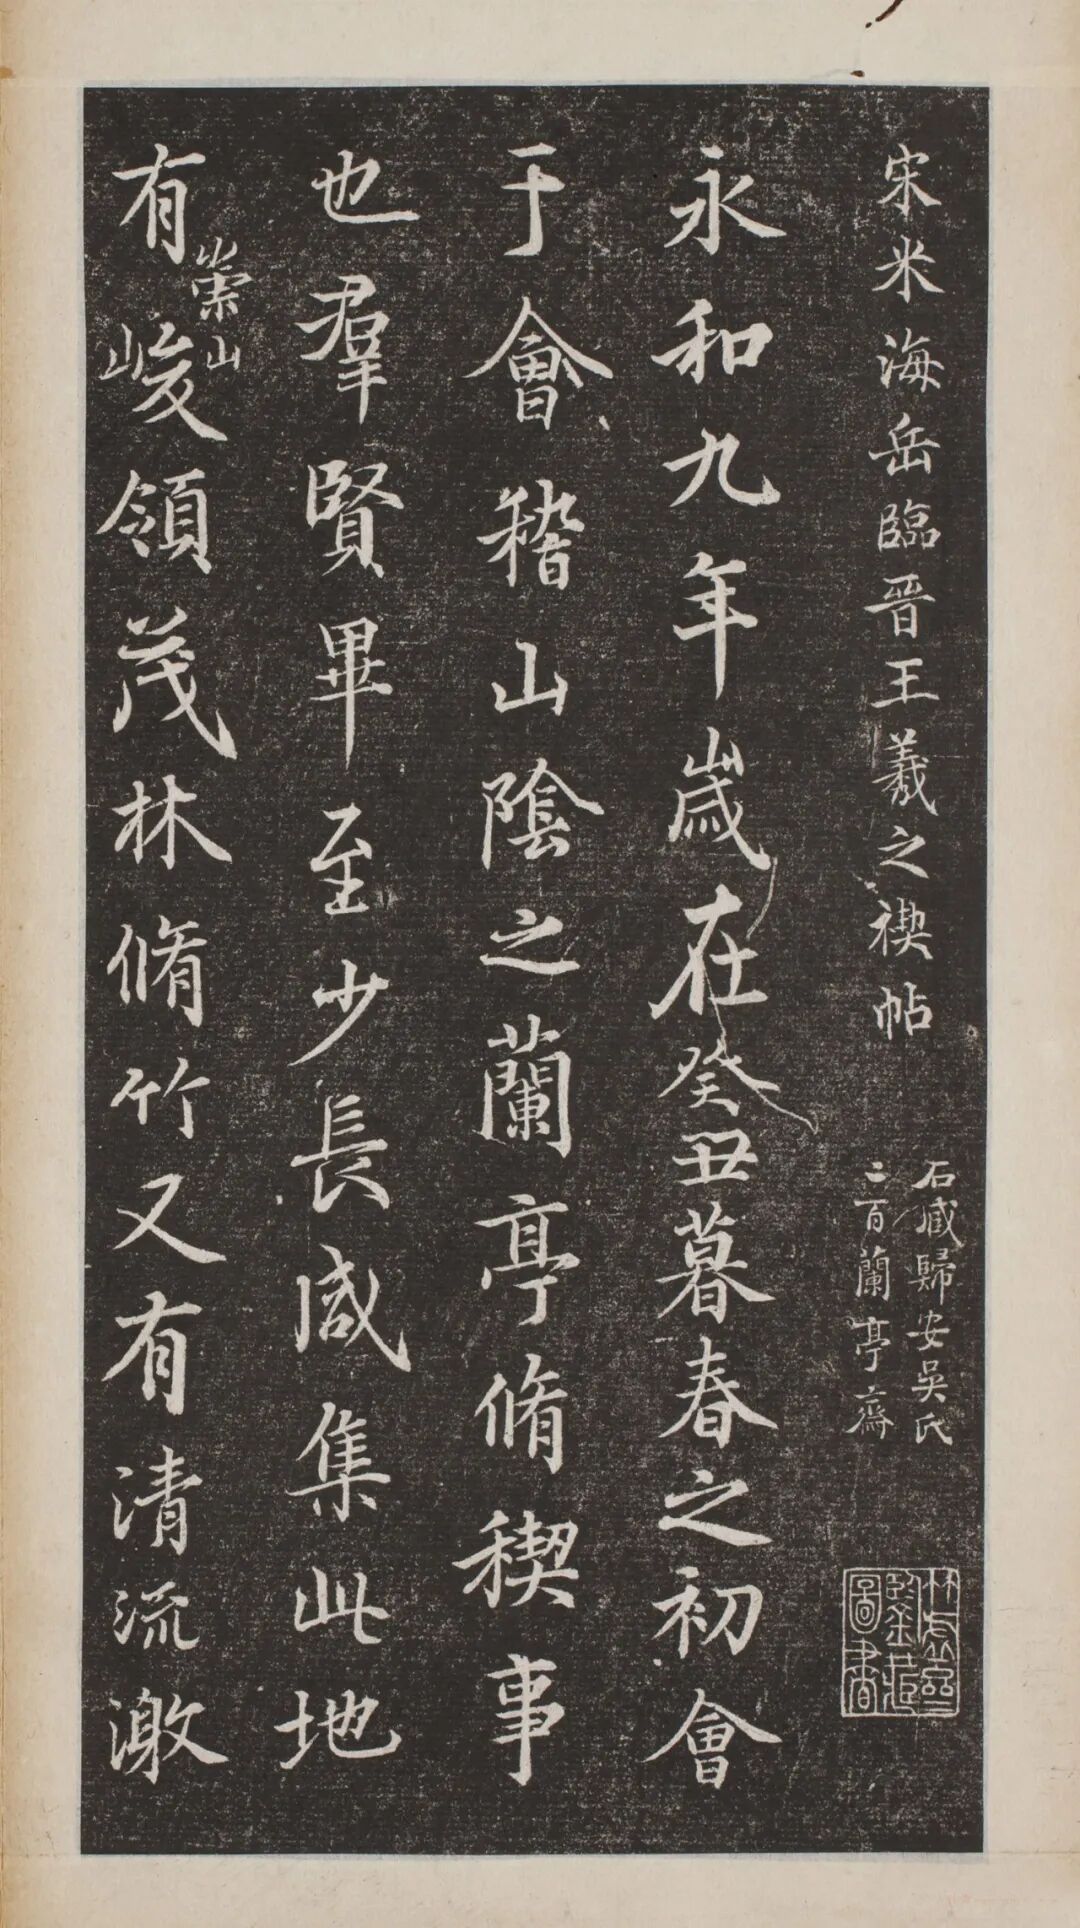 宋米海岳臨晉王羲之禊帖
石臧歸安吳氏
二百蘭亭齋
永和九年歲在癸丑暮春之初會
于會稽山陰之蘭亭脩稧事
也羣賢畢至少長咸集此地
有峻領茂林脩竹又有清流激
崇山